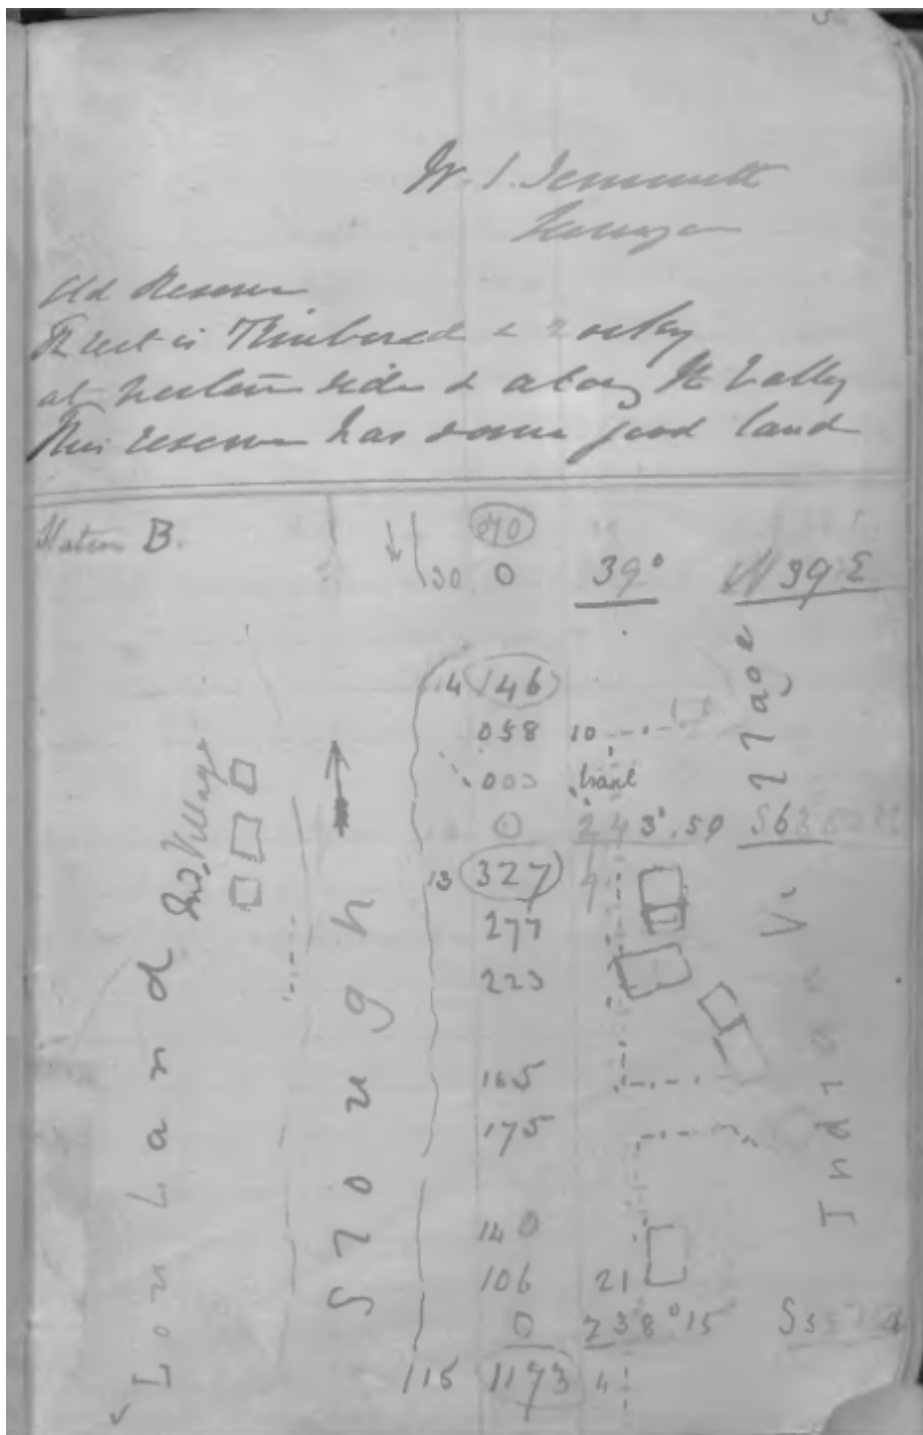 W. S. Jemmett
Surveyor
Old Reserve
The rest is Timbered & rocky
at western side & along the valley
This reserve has some good land
Station B.
270
30 0 39° N 39 E
14 146
058 10
003 trail
0 243°.50 S63
13 327 9
277
223
165
175
140
106 21
0 238°15
115 1173 4
Low Land
Ind. Village
Slough
Indian Village